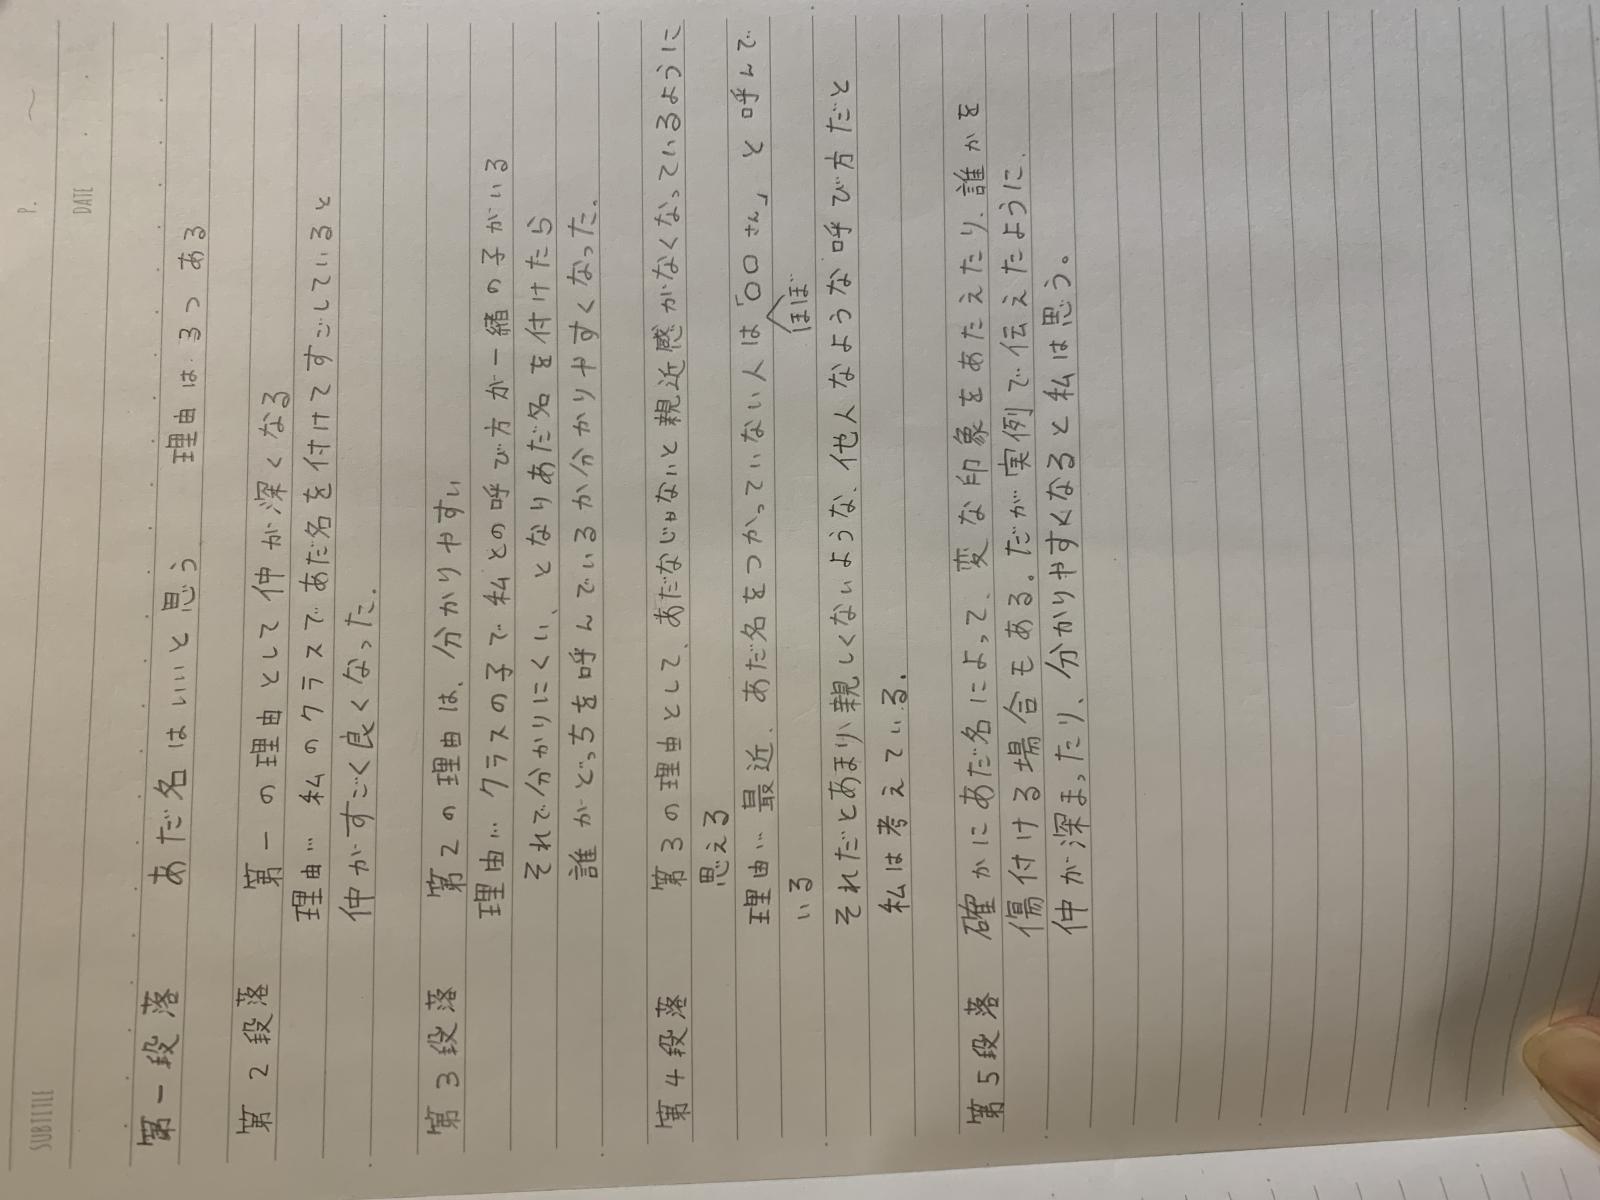 P. ~
DATE
SUBTITLE
第一段落 あだ名はいいと思う 理由は3つある
第2段落 第一の理由として仲が深くなる
理由… 私のクラスであだ名を付けてすごしていると
仲がすごく良くなった.
第3段落 第2の理由は、分かりやすい
理由… クラスの子で私との呼び方が一緒の子がいる
それで分かりにくい、となりあだ名を付けたら
誰がどっちを呼んでいるか分かりやすくなった.
第4段落 第3の理由として、あだなじゃないと親近感がなくなっているように
思える
理由… 最近、あだ名をつかっていない人は「〇〇さん」と呼んで
ほぼ
いる
それだとあまり親しくないような、他人なような呼び方だと
私は考えている.
第5段落 確かにあだ名によって、変な印象をあたえたり、誰かを
傷付ける場合もある。だが実例で伝えたように
仲が深まったり、分かりやすくなると私は思う。